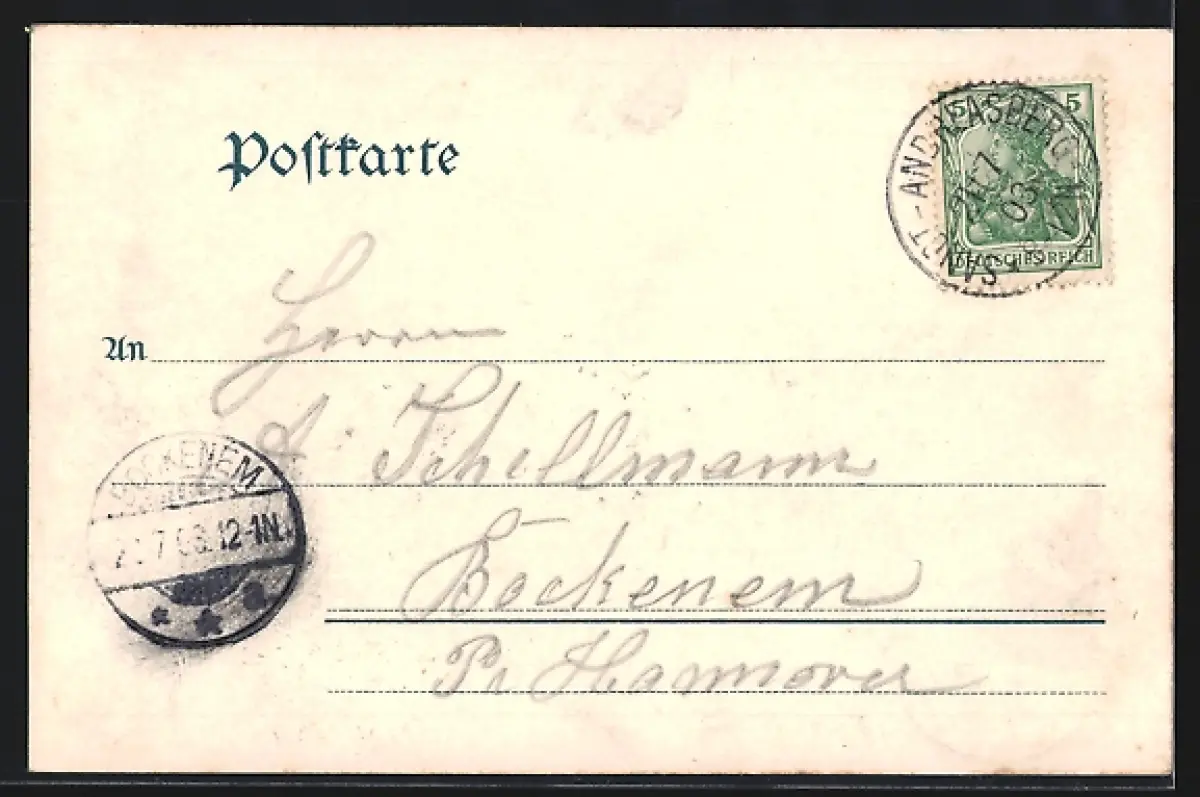 Postkarte
5 5
DEUTSCHES REICH
SANCT-ANDREASBERG
7
03
An Herrn
A. Schillmann
Bockenem
Pr Hannover
BOCKENEM
7 03. 12-1N.